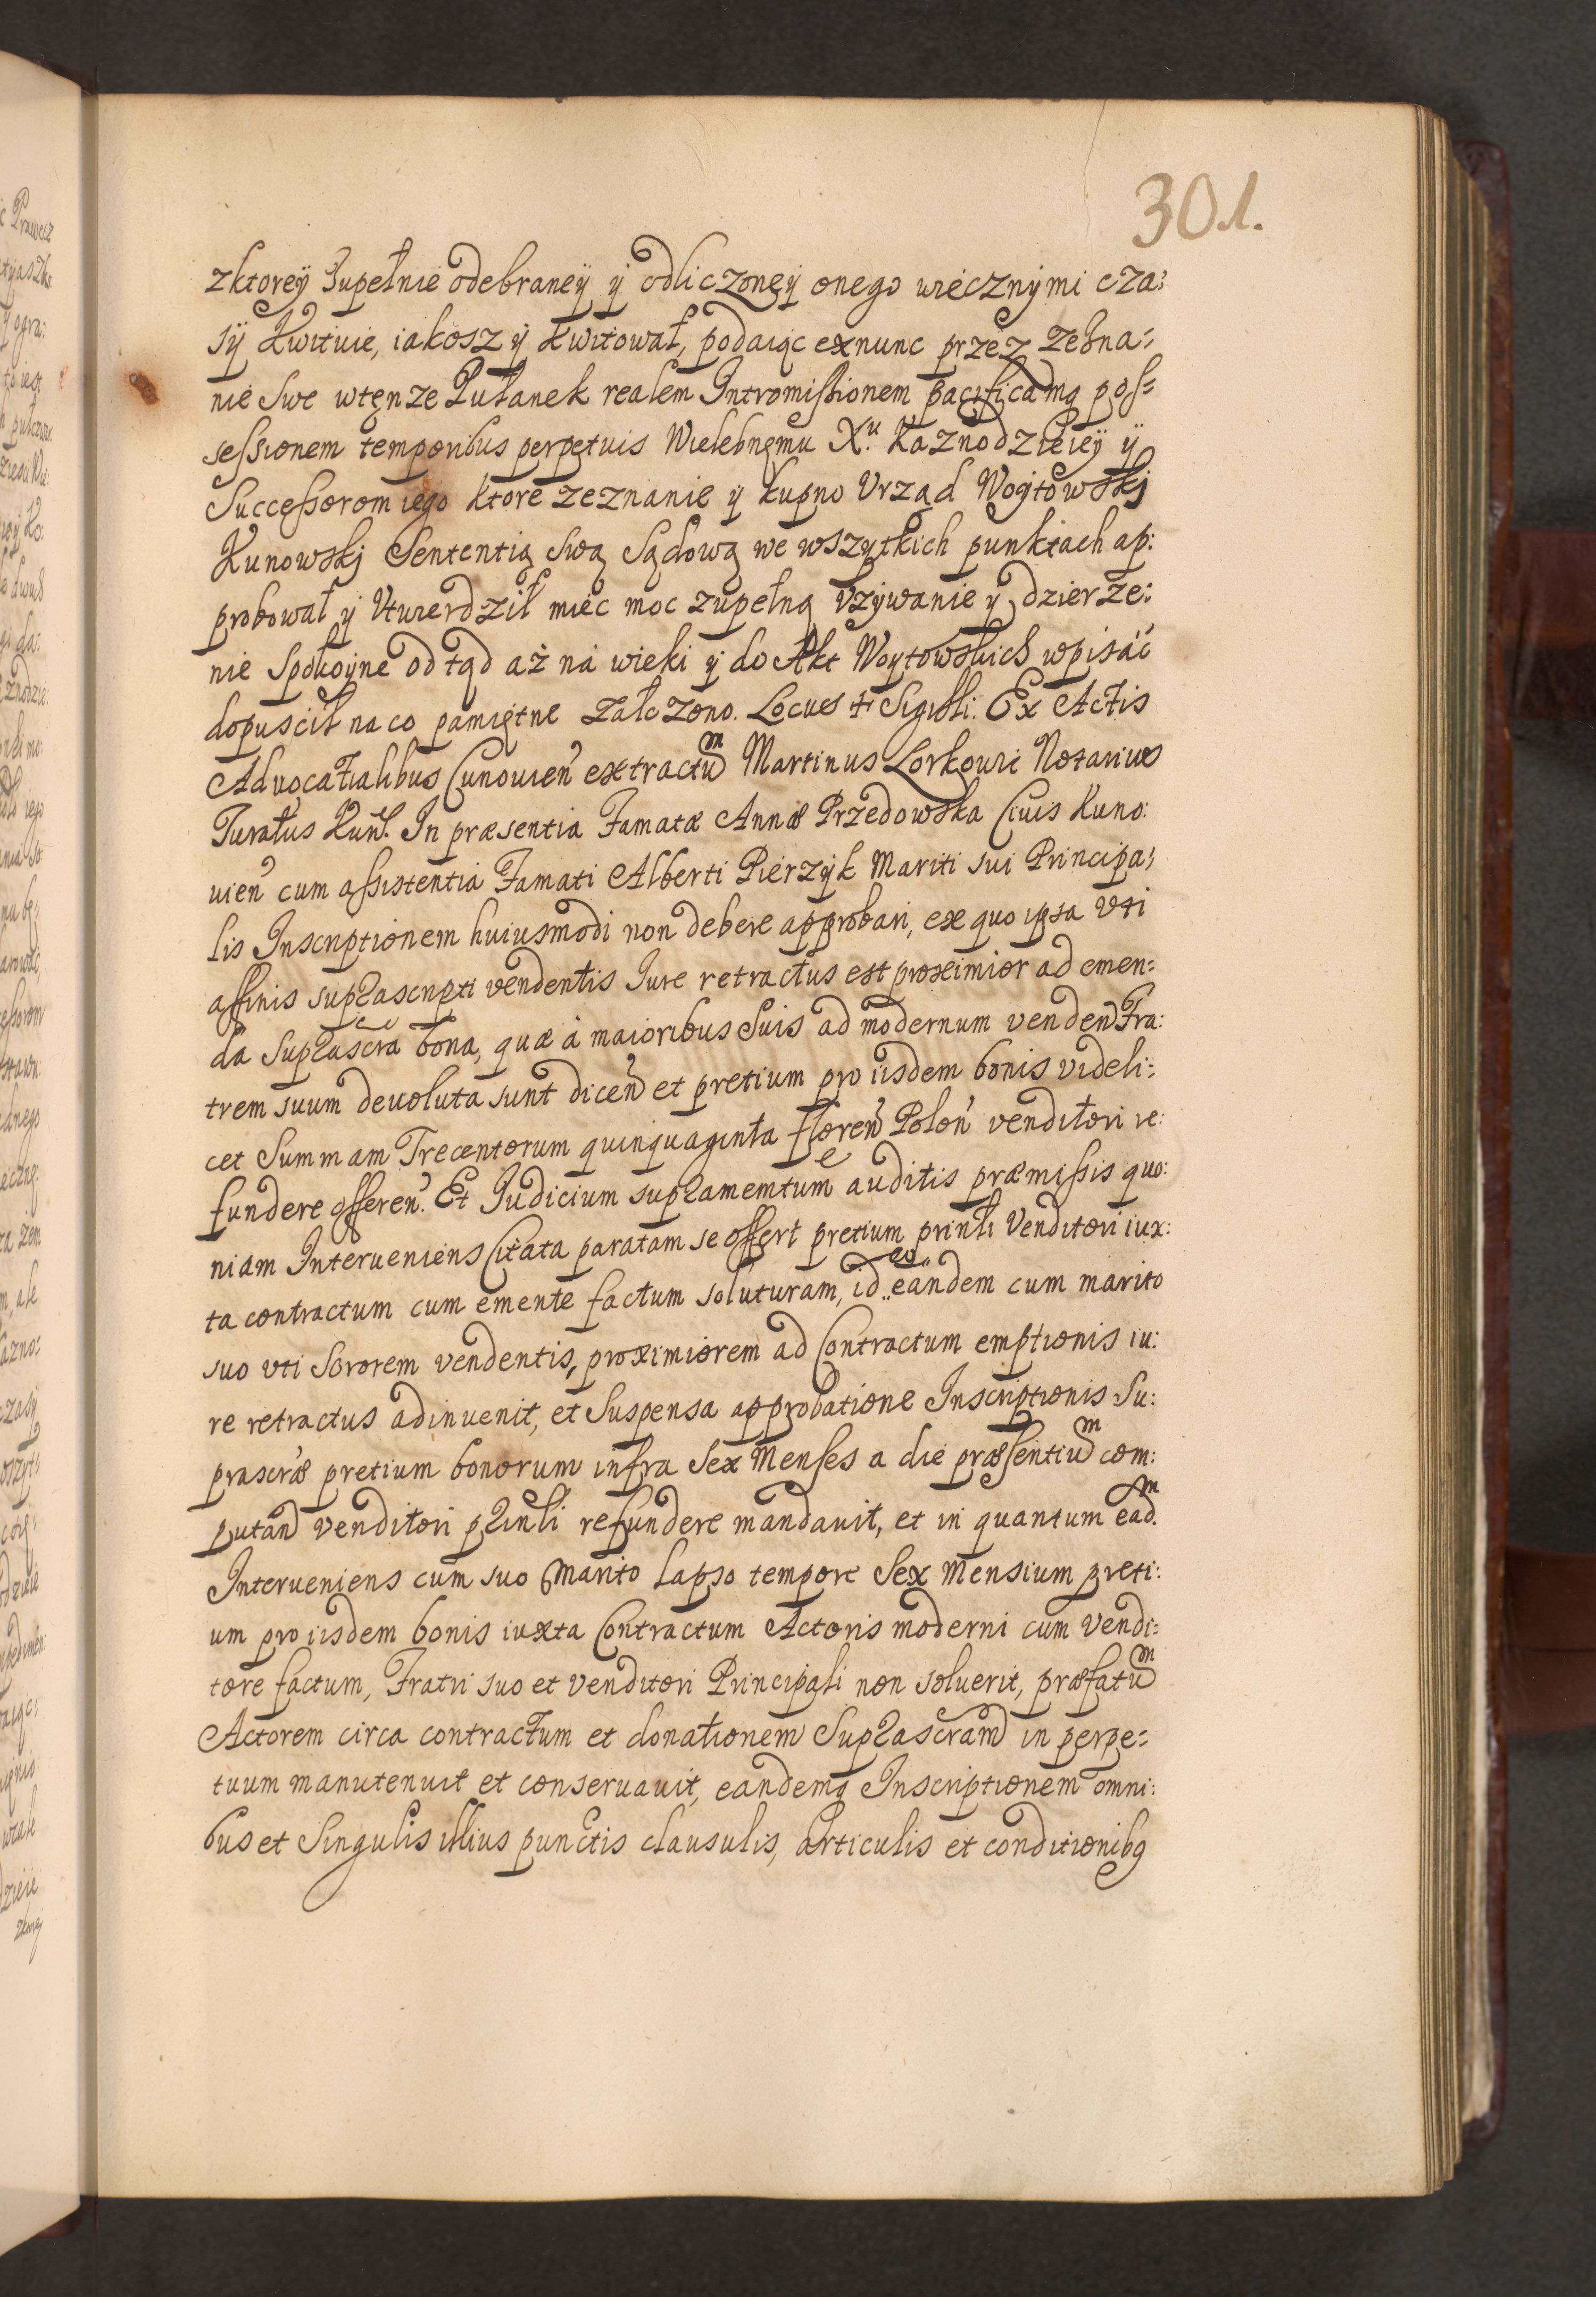 301.
zktoreÿ zupełnie odebraneÿ ÿ odliczoneÿ onego wiecznÿmi cza:
sÿ Kwituie, iakosz ÿ kwitował, podaiąc exnunc przez zezna:
nie Swe wtęnze Pułanek realem Intromissionem pacificamq pos:
sessionem temporibus perpetuis Wielebnemu X.u Kaznodzieieÿ ÿ
Successorom iego ktore zeznanie ÿ kupno Vrząd Woÿtowskj
Kunowskj Sententią swą Sądową we wszytkich punktach ap:
probował ÿ Utwierdził miec moc zupełną Vzÿwanie ÿ dzierze:
nie Spokoÿne odtąd aż ná wieki ÿ do Akt Woÿtowskich wpisáć
dopuscił na co pamiętne załozono. Locus + Sigilli. Ex Actis
Advocatialibus Cunouien extractum Martinus Lorkowic Notarius
Juratus Kun. In præsentia Famatæ Annæ Przedowska Civis Kuno:
uien cum assistentia Famati Alberti Pierzÿk Mariti sui Principa:
lis Inscriptionem huiusmodi non debere approbari, ex quo ipsa Vti
affinis suprascripti vendentis Jure retractus est proximior ad emen:
da suprascra bona, quæ à maioribus Suis ad modernum venden Fra:
trem suum devoluta sunt dicen et pretium pro iisdem bonis videli:
cet Summam Trecentorum quinquaginta floren Polon venditori re:
fundere offeren. Et Judicium supramemtum auditis præmissis quo:
niam Interueniens Citata paratam se offert pretium prinli Venditori iux:
ta contractum cum emente factum soluturam, id eo eandem cum marito
suo vti Sororem vendentis, proximiorem ad Contractum emptionis iu:
re retractus adinuenit, et Suspensa approbatione Inscriptionis Su:
prascræ pretium bonorum infra Sex Menses a die præsentium com:
putan venditori prinli refundere mandauit, et in quantum eadm.
Interueniens cum suo Marito lapso tempore Sex Mensium preti:
um pro iisdem bonis iuxta Contractum Actoris moderni cum Vendi:
tore factum, Fratri suo et venditori Principali non soluerit, præfatum
Actorem circa contractum et donationem Suprascram in perpe:
tuum manutenuit et conseruauit, eandemq Inscriptionem omni:
bus et Singulis illius punctis clausulis, articulis et conditionibq